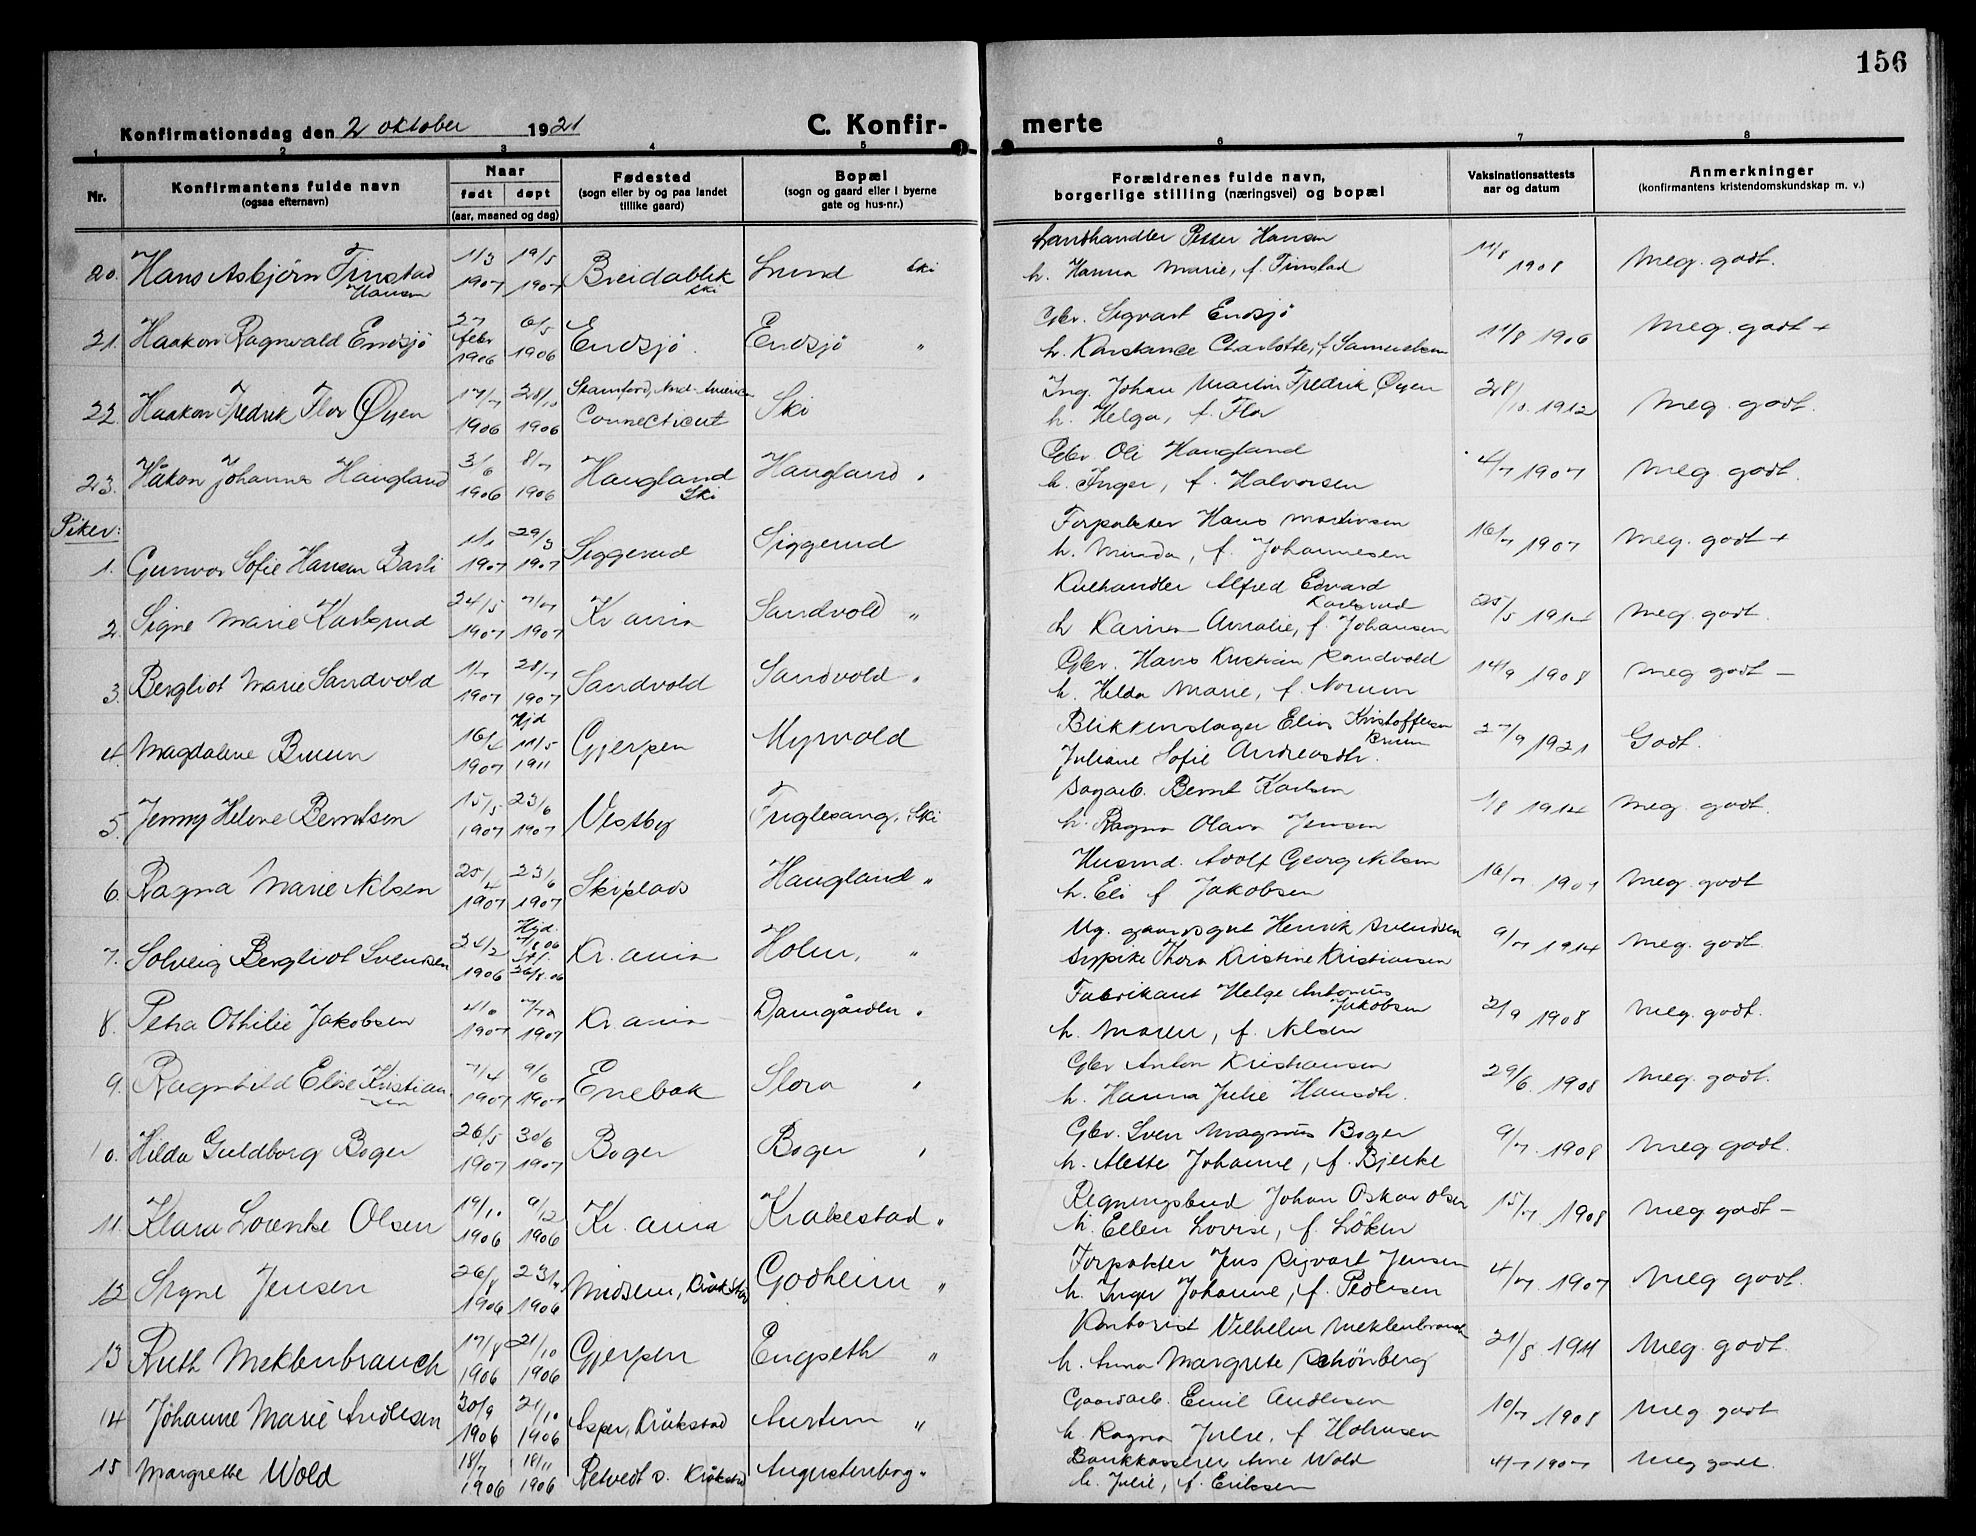 156
Konfirmationsdag den 2 oktober 1921
C. Konfir- merte
1 2 3 4 5 6 7 8
Nr.
Konfirmantens fulde navn
(ogsaa efternavn)
Naar
født døpt
(aar, maaned og dag)
Fødested
(sogn eller by og paa landet
tillike gaard)
Bopæl
(sogn og gaard eller i byerne
gate og hus-nr.)
Forældrenes fulde navn,
borgerlige stilling (næringsvei) og bopæl
Vaksinationsattests
aar og datum
Anmerkninger
(konfirmantens kristendomskundskap m. v.)
20. Hans Asbjørn Finstad Hansen 11/3 1907 19/5 1907 Breidablik Ski Lund Ski Landhandler Petter Hansen
h. Hanna Marie, f. Finstad 11/8 1908 Meg. godt.
21. Haakon Ragnvald Endsjö 27 febr 1906 6/5 1906 Endsjø. Endsjø " Gbr. Sigvart Endsjø
h. Konstance Charlotte, f. Samuelsen 11/8 1906 Meg. godt +
22. Haakon Fredrik Flor Øyen 17/7 1906 28/10 1906 Stamford, Nord-Amerika Connecticut Ski Ing. Johan Martin Fredrik Øyen
h. Helga, f. Flor 28/10. 1912 Meg. godt.
23. Håkon Johannes Haugland 3/6 1906 8/7 1906 Haugland Ski Haugland " Gbr. Ole Haugland
h. Inger, f. Halvorsen 4/7 1907 Meg. godt.
Piker:
1. Gunvor Sofie Hansen Basli 1/1 1907 29/3 1907 Siggerud Siggerud Forpakter Hans Martinsen
h. Minda, f. Johannesen 16/7 1907 Meg. godt +
2. Signe Marie Karlsrud 24/5 1907 7/7 1907 Kr ania Sandvold " Kulhandler Alfred Edvard Karlsrud
h Karen Amalie, f. Johansen 25/5 1914 Meg. godt.
3. Bergliot Marie Sandvold 1/7 1907 28/7 1907 Sandvold Sandvold " Gbr. Hans Kristian Sandvold
h. Helda Marie, f. Norum 14/9 1908 Meg godt –
4. Magdalene Bruun 16/4 1907 Hjd 11/5 1911 Gjerpen Myrvold Blikkenslager Elius Kristoffersen Bruun
Juliane Sofie Andreasdtr. 27/9 1921 Godt.
5. Jenny Helene Berntsen 15/5 1907 23/6 1907 Vestby Fuglesang, Ski Sagarb. Bernt Karlsen
h. Ragna Olava Jensen 1/8 1914 Meg. godt.
6. Ragna Marie Nilsen 25/4 1907 23/6 1907 Skiplads Haugland " Husmd. Adolf Georg Nilsen
h. Eli f Jakobsen 16/7 1907 Meg. godt
7. Solveig Bergliot Svendsen 24/2 1906 Hjd. 7/8 06 Stf. 26/8.06 Kr. ania Holm, " Ug. gaardsgut Henrik Svendsen
og pike Thora Kristine Kristiansen 9/7 1914 Meg. godt.
8. Petra Othilie Jakobsen 1907 1907 Kr. ania Damgården " Fabrikant Helge Antonius Jakobsen
h. Maren, f. Nilsen 21/9 1908 Meg. godt.
9. Ragnhild Elise Kristiansen 7/4 1907 9/6 1907 Enebak Slora " Gbr Anton Kristiansen
h. Hanna Julie Hansdtr. 29/6 1908 Meg. godt.
10. Hilda Guldborg Bøger 26/5 1907 30/6 1907 Bøger Bøger " Gbr. Sven Magnus Bøger
h. Alette Johanne, f. Bjerke 9/7. 1908 Meg godt.
11. Klara Lovenke Olsen 19/10 1906 9/12 1906 Kr. ania Krakestad " Regningsbud Johan Oskar Olsen
h. Ellen Lovise, f. Løken 15/7 1908 Meg godt –
12 Signe Jensen 26/8 1906 23/1 1906 Midsem, Kråkstad Godheim " Forpakter Jens Sigvart Jensen
h. Inger Johanne, f. Pedersen 4/7. 1907 Meg godt.
13 Ruth Meklenbrauch 17/8 1906 21/10 1906 Gjerpen Engseth " Kontorist Vilhelm Meklenbrauch
h. Anna Margrete Schønberg 21/8. 1911 Meg. godt.
14 Johanne Marie Andersen 30/9 1906 21/10 1906 Asper, Kråkstad Austum " Gaardarb. Emil Andersen
h. Ragna Julie, f Holmsen 10/7 1908 Meg godt
15 Margrethe Wold 18/7 1906 18/11 1906 Retvedt v. Kråkstad Augustenborg " Bankkasserer Arne Wold
h. Julie, f. Eriksen 4/7 1907 Meg godt.